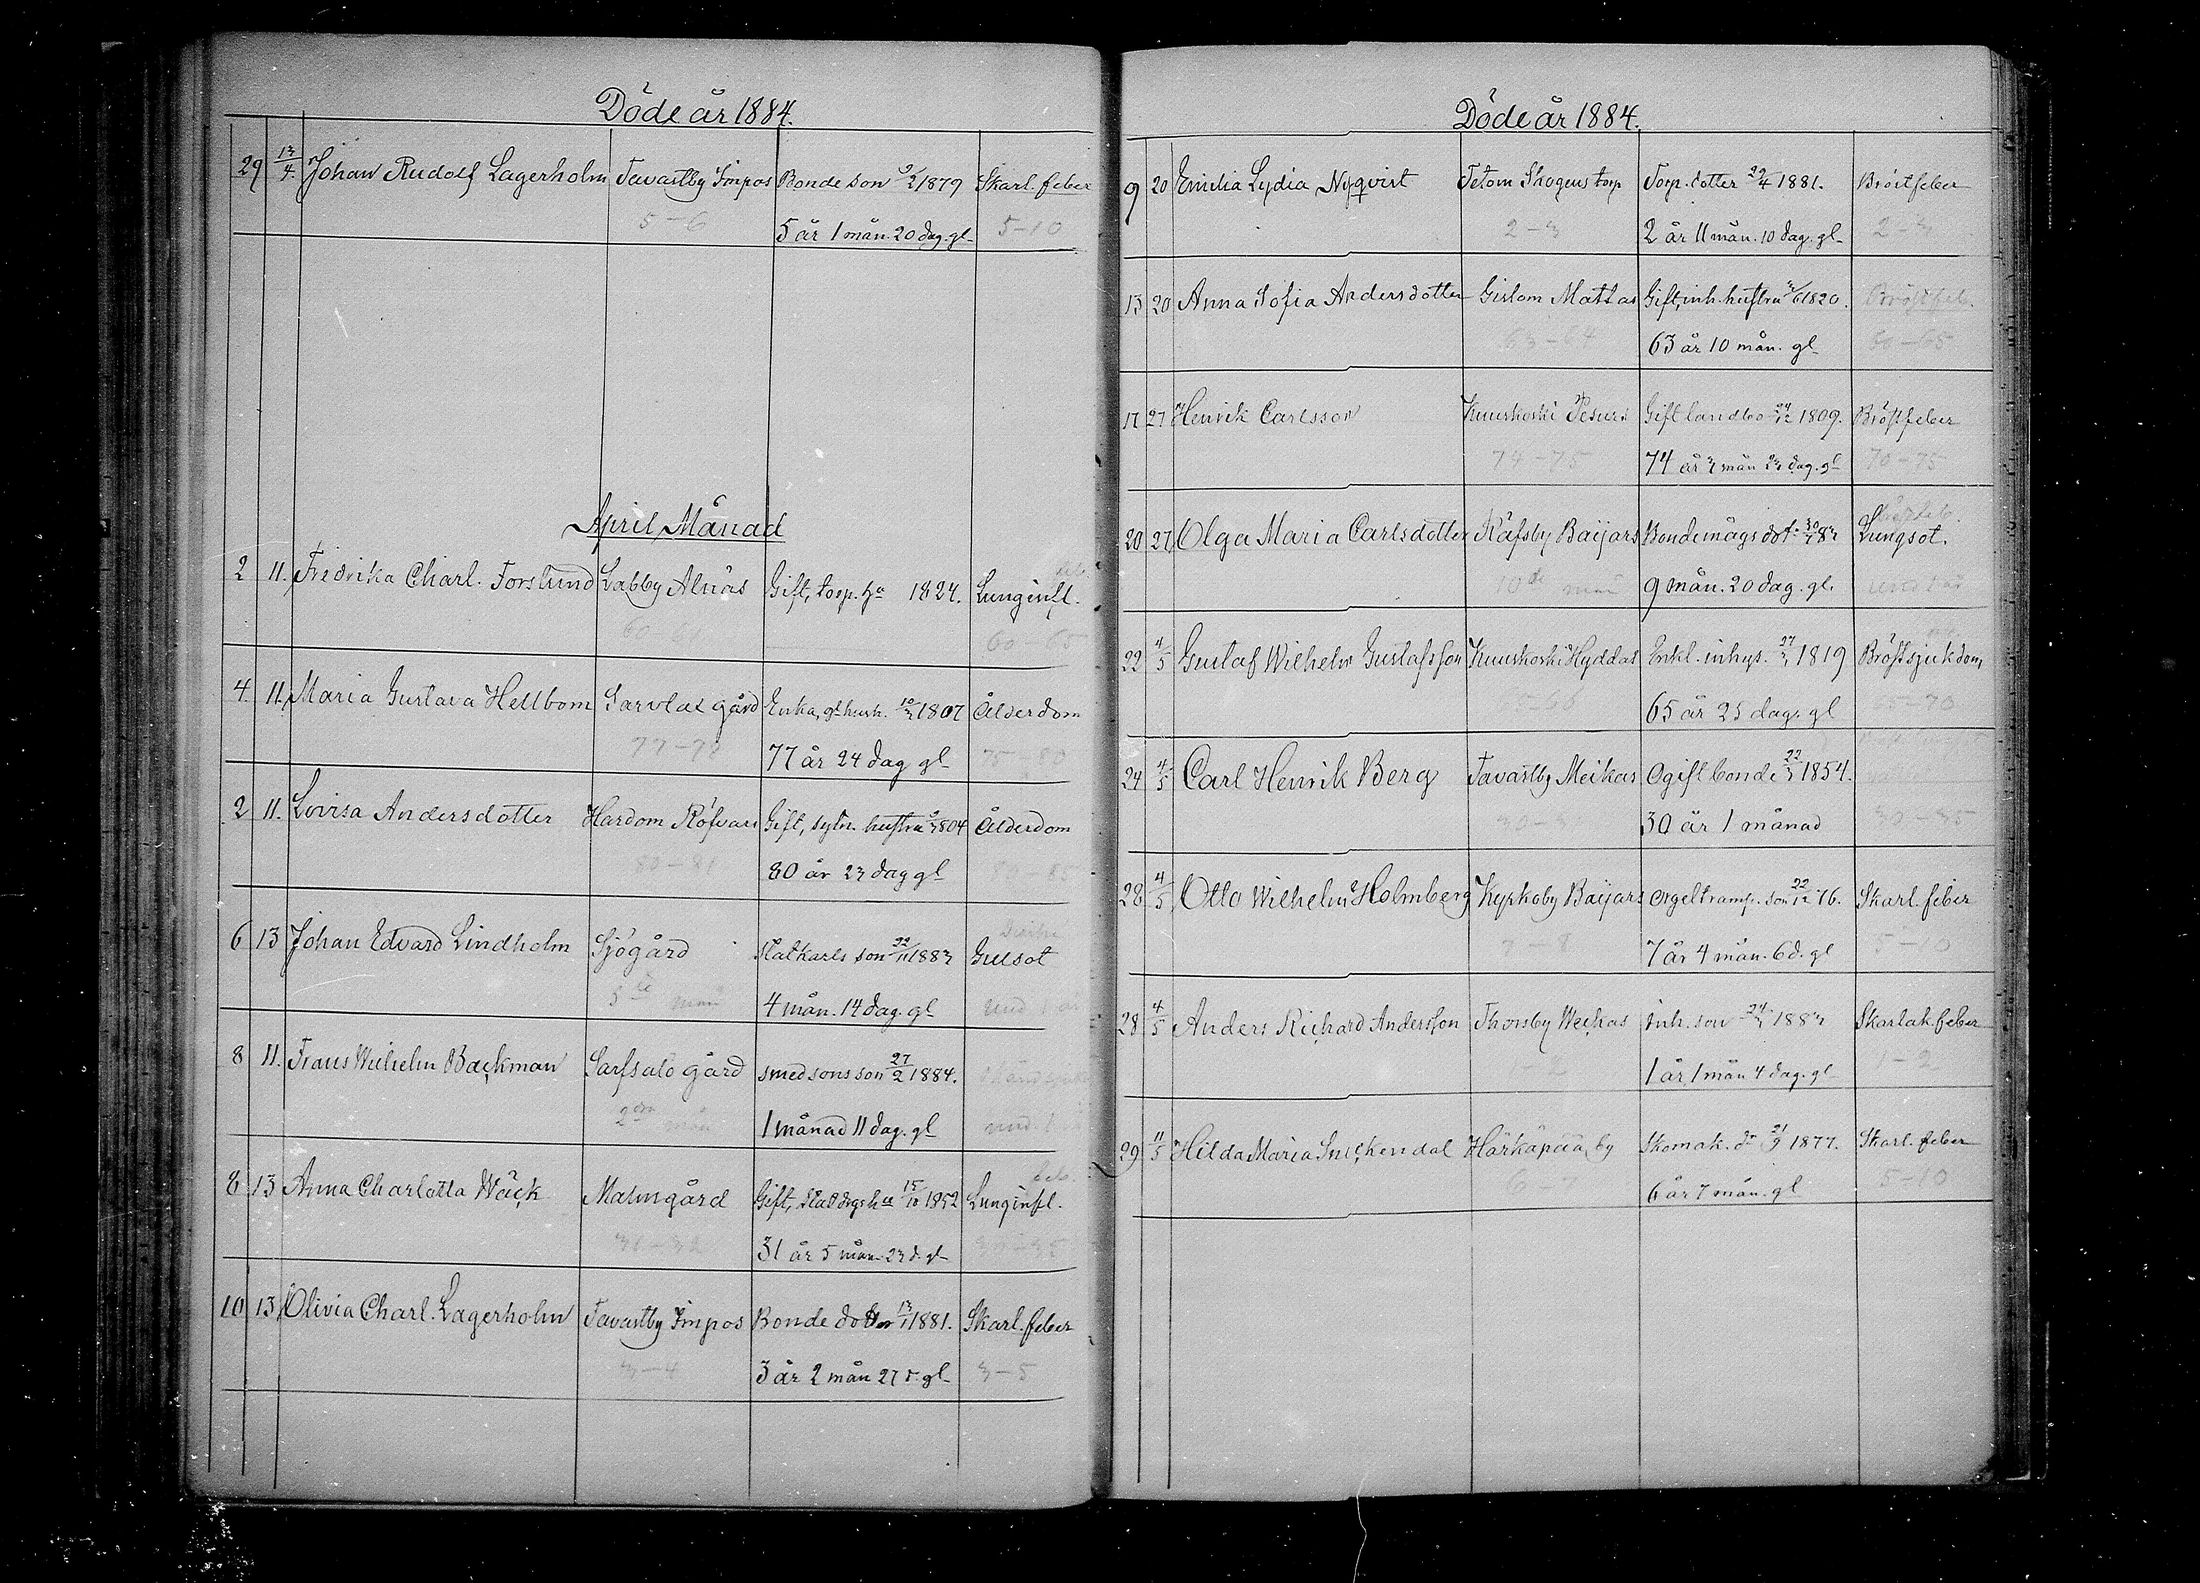 Döde år 1884.
29 13/4. Johan Rudolf Lagerholm Tavastby Simpos Bonde son 9/2 1879 Skarl. feber
5-6 5 år 1 mån. 20 dag. gl 5-10
April Månad
2 11. Fredrika Charl. Forslund Labby Alnäs Gift, torp. hu 1824. Lunginfl.
60-65
4. 11. Maria Gustava Hellbom Sarvlax gård Enka, 10/3 1807 Ålderdom
77-78 77 år 24 dag gl 75 80
2 11. Lovisa Andersdotter Hardom Röfvars Gift, sytn. hustru 1804 Ålderdom
80-81 80 år 23 dag gl 80 85
6 13 Johan Edvard Lindholm Sjögård Statkarls son 22/11 1883 Gulsot
5te mån 4 mån. 14 dag. gl und 1 år
8 11. Frans Wilhelm Backman Sarfsalö gård smedsons son 27/2 1884.
2dra mån 1 månad 11 dag. gl und. 1
8 13 Anna Charlotta Wäck Malmgård Gift, statdrgs hu 15/10 1852 Lunginfl.
31-32 31 år 5 mån 23 d. gl 30-35
10 13 Olivia Charl. Lagerholm Tavastby Simpos Bonde dotter 13/1 1881. Skarl. feber
3-4 3 år 2 mån 27 d. gl 3-5
Döde år 1884.
9 20 Emilia Lydia Nyqvist Tetom Skogens torp Torp. dotter 29/4 1881. Bröstfeber
2-3 2 år 11 mån. 10 dag. gl 2-3
13 20 Anna Sofia Andersdotter Gislom Mattas Gift, inh. hustru /6 1820. Bröstfeb.
63-64 63 år 10 mån. gl 60-65
17 27 Henrik Carlsson Kuuskoski Pesurs Gift landbo 24/12 1809. Bröstfeber
74-75 74 år 3 mån 23 dag. gl 70-75
20 27 Olga Maria Carlsdotter Räfsby Baijars Bondemågs dotr 30/6 83 Lungsot.
10de mån 9 mån. 20 dag. gl. und 1 år
22 4/5 Gustaf Wilhelm Gustafsson Kuuskoski Hyddas Enkl. inhys. 27/3 1819 Bröstsjukdom
65 66 65 år 25 dag. gl 65-70
24 4/5 Carl Henrik Berg Tavastby Meikas Ogift bonde 22/3 1854.
30 år 1 månad 30-35
28 4/5 Otto Wilhelm Holmberg Kyrkoby Baijars Orgeltramp. son 22/12 76. Skarl. feber
7-8 7 år 4 mån. 6 d. gl 5-10
28 4/5 Anders Richard Andersson Thorsby Weckas Inh. son 24/3 1883 Skarlak. feber
1 år 1 mån 4 dag. gl 1-2
29 11/5 Hilda Maria Snickendal Härkäpää by Skomak. dr 21/9 1877. Skarl. feber
6-7 6 år 7 mån. gl 5-10